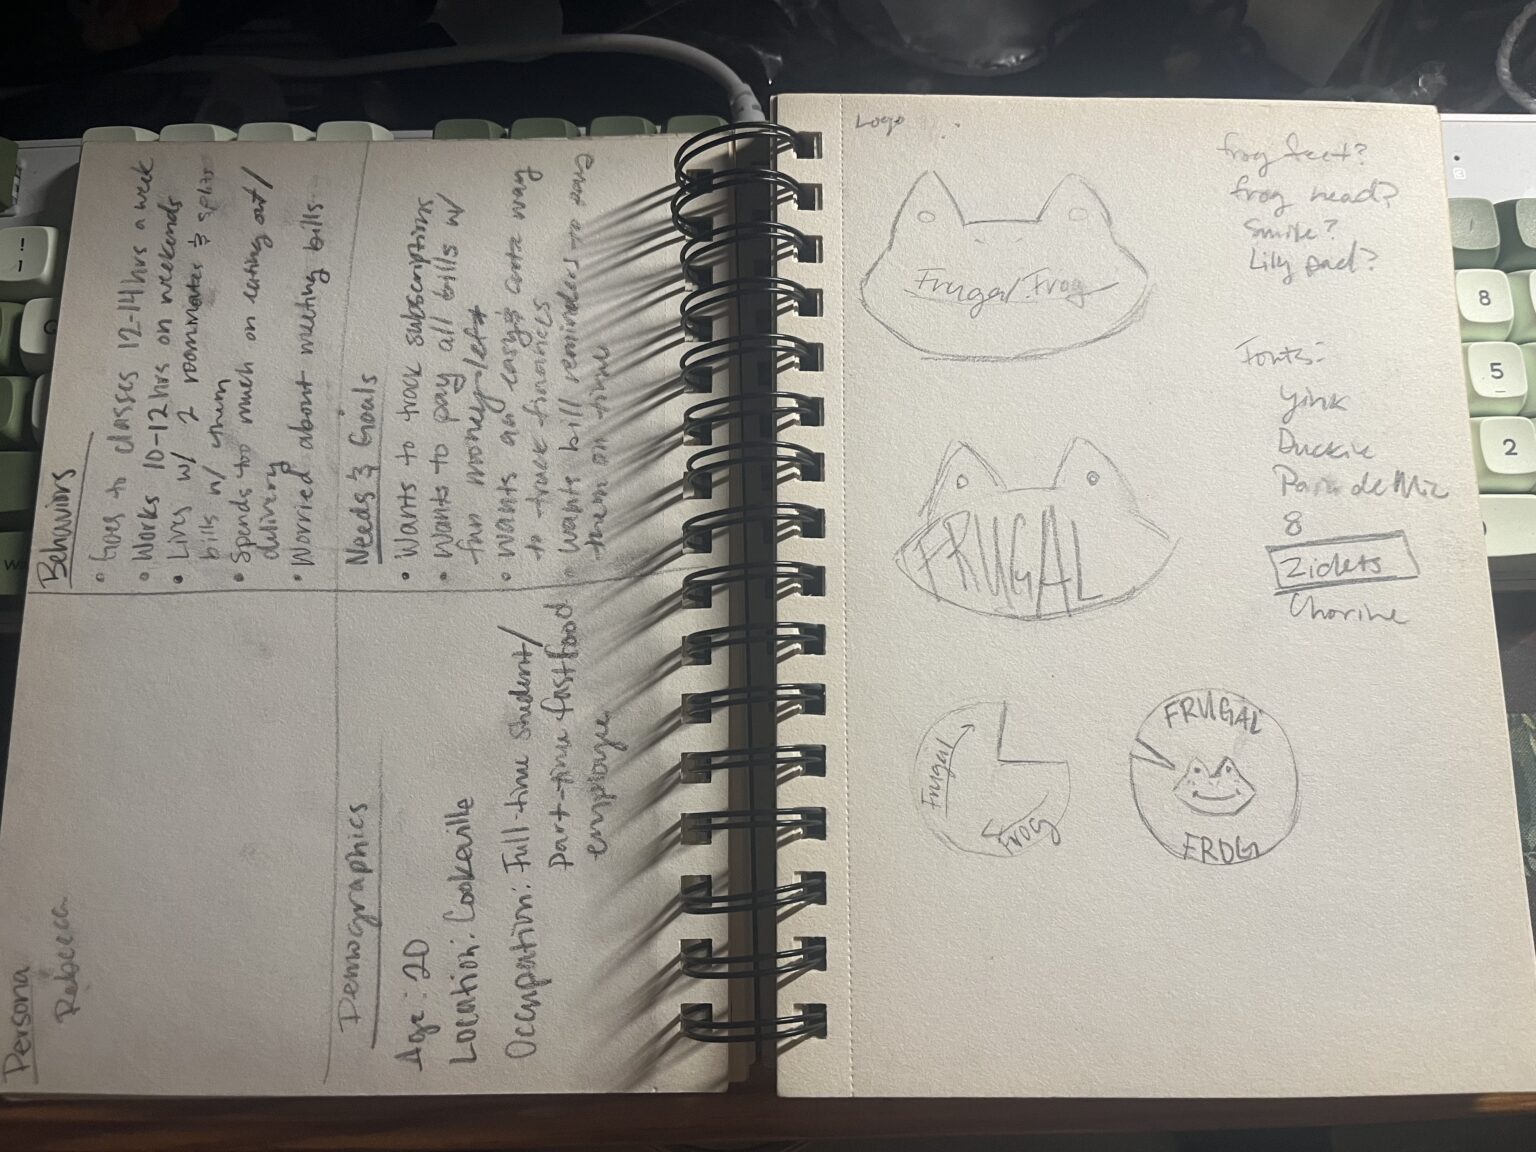 Persona
Rebecca
Behaviors
• Goes to classes 12-14hrs a week
• Works 10-12hrs on weekends
• Lives w/ 2 roommates & splits
bills w/ them
• Spends too much on eating out/
delivery
• Worried about meeting bills.
Demographics
Age: 20
Location: Cookeville
Occupation: Full-time student/
part-time fastfood
employee
Needs & Goals
• Wants to track subscriptions
• Wants to pay all bills w/
fun money left
• Wants an easy & cute way
to track finances
• Wants bill reminders to
them on time
Logo
Frugal Frog
FRUGAL
Frugal
Frog
FRUGAL
FROG
frog feet?
frog head?
Smile?
Lily pad?
Fonts:
Yink
Duckie
8
Ziclets
Chorine
!
1
8
5
2